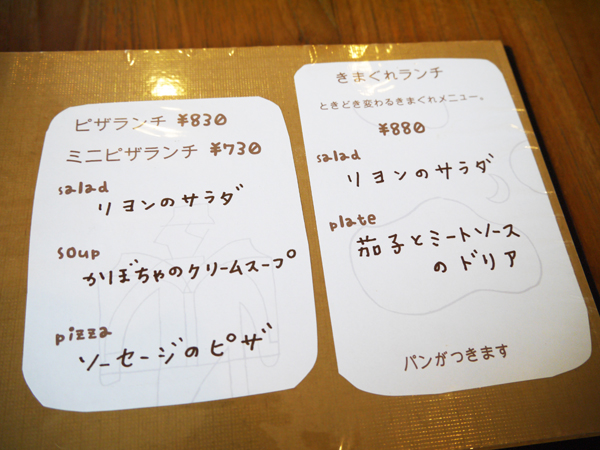 ピザランチ ¥830
ミニピザランチ ¥730
salad
リヨンのサラダ
soup
かぼちゃのクリームスープ
pizza
ソーセージのピザ
きまぐれランチ
ときどき変わるきまぐれメニュー。
¥880
salad
リヨンのサラダ
plate
茄子とミートソース
のドリア
パンがつきます